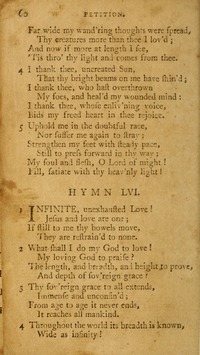 60 PETITION.
Far wide my wand'ring thoughts were spread,
Thy creatures more than thee I lov'd;
And now if more at length I see,
'Tis thro' thy light and comes from thee.
4 I thank thee, uncreated Sun,
That thy bright beams on me have shin'd;
I thank thee, who hast overthrown
My foes, and heal'd my wounded mind:
I thank thee, whose enliv'ning voice,
Bids my freed heart in thee rejoice.
5 Uphold me in the doubtful race,
Nor suffer me again to stray;
Strengthen my feet with steady pace,
Still to press forward in thy way;
My soul and flesh, O Lord of might!
Fill, satiate with thy heav'nly light!
HYMN LVI.
1 INFINITE, unexhausted Love!
Jesus and love are one;
If still to me thy bowels move,
They are restrain'd to none.
2 What shall I do my God to love!
My loving God to praise?
The length, and breadth, and height to prove,
And depth of sov'reign grace?
3 Thy sov'reign grace to all extends,
Immense and unconfin'd;
From age to age it never ends,
It reaches all mankind.
4 Throughout the world its breadth is known,
Wide as infinity!